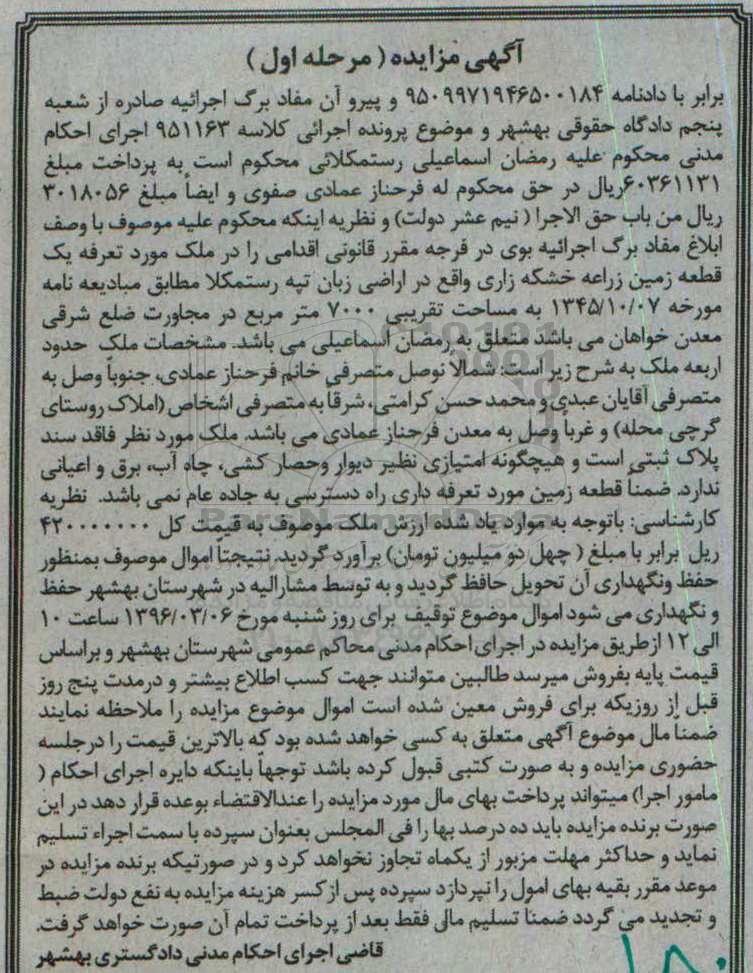 آگهی مزایده ( مرحله اول )
برابر با دادنامه ۹۵۰۹۹۷۱۹۴۶۵۰۰۱۸۴ و پیرو آن مفاد برگ اجرائیه صادره از شعبه
پنجم دادگاه حقوقی بهشهر و موضوع پرونده اجرائی کلاسه ۹۵۱۱۶۳ اجرای احکام
مدنی محکوم علیه رمضان اسماعیلی رستمکلائی محکوم است به پرداخت مبلغ
۶۰۳۶۱۱۳۱ریال در حق محکوم له فرحناز عمادی صفوی و ایضاً مبلغ ۳۰۱۸۰۵۶
ریال من باب حق الاجرا ( نیم عشر دولت) و نظریه اینکه محکوم علیه موصوف با وصف
ابلاغ مفاد برگ اجرائیه بوی در فرجه مقرر قانونی اقدامی را در ملک مورد تعرفه یک
قطعه زمین زراعه خشکه زاری واقع در اراضی زبان تپه رستمکلا مطابق مبادیعه نامه
مورخه ۱۳۴۵/۱۰/۰۷ به مساحت تقریبی ۷۰۰۰ متر مربع در مجاورت ضلع شرقی
معدن خواهان می باشد متعلق به رمضان اسماعیلی می باشد. مشخصات ملک حدود
اربعه ملک به شرح زیر است: شمالاً نوصل متصرفی خانم فرحناز عمادی، جنوباً وصل به
متصرفی آقایان عبدی و محمد حسن کرامتی، شرقا به متصرفی اشخاص (املاک روستای
گرجی محله) و غرباً وصل به معدن فرحناز عمادی می باشد. ملک مورد نظر فاقد سند
پلاک ثبتی است و هیچگونه امتیازی نظیر دیوار وحصار کشی، چاه آب، برق و اعیانی
ندارد. ضمناً قطعه زمین مورد تعرفه داری راه دسترسی به جاده عام نمی باشد. نظریه
کارشناسی: باتوجه به موارد یاد شده ارزش ملک موصوف به قیمت کل ۴۲۰۰۰۰۰۰۰
ریل برابر با مبلغ ( چهل دو میلیون تومان) برآورد گردید. نتیجتاً اموال موصوف بمنظور
حفظ ونگهداری آن تحویل حافظ گردید و به توسط مشارالیه در شهرستان بهشهر حفظ
و نگهداری می شود اموال موضوع توقیف برای روز شنبه مورخ ۱۳۹۶/۰۳/۰۶ ساعت ۱۰
الی ۱۲ ازطریق مزایده در اجرای احکام مدنی محاکم عمومی شهرستان بهشهر و براساس
قیمت پایه بفروش میرسد طالبین متوانند جهت کسب اطلاع بیشتر و درمدت پنج روز
قبل از روزیکه برای فروش معین شده است اموال موضوع مزایده را ملاحظه نمایند
ضمناً مال موضوع آگهی متعلق به کسی خواهد شده بود که بالاترین قیمت را درجلسه
حضوری مزایده و به صورت کتبی قبول کرده باشد توجهاً باینکه دایره اجرای احکام (
مامور اجرا) میتواند پرداخت بهای مال مورد مزایده را عندالاقتضاء بوعده قرار دهد در این
صورت برنده مزایده باید ده درصد بها را فی المجلس بعنوان سپرده با سمت اجراء تسلیم
نماید و حداکثر مهلت مزبور از یکماه تجاوز نخواهد کرد و در صورتیکه برنده مزایده در
موعد مقرر بقیه بهای امول را نپردازد سپرده پس ازکسر هزینه مزایده به نفع دولت ضبط
و تجدید می گردد ضمناً تسلیم مال فقط بعد از پرداخت تمام آن صورت خواهد گرفت.
قاضی اجرای احکام مدنی دادگستری بهشهر